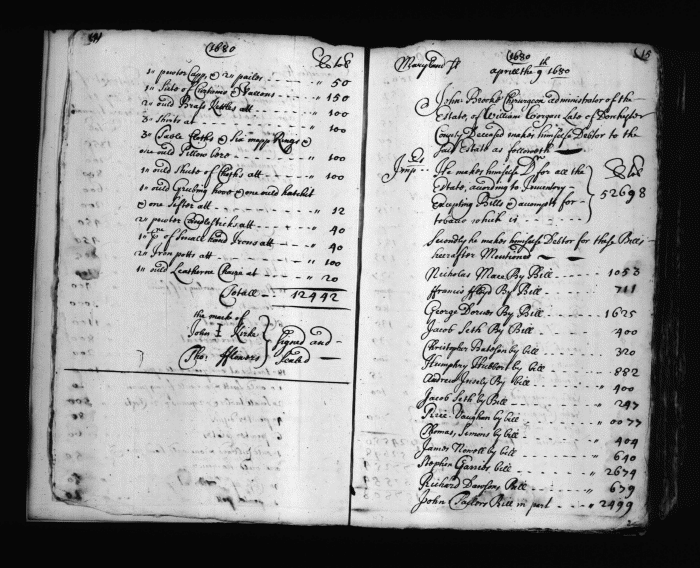 (1680
lbs tob
1 pewter Cupp, & 2 pailes - - - " 50
1 Sute of Curtaines & Vallons - - " 150
2 ould Brass Kettles att - - - " 100
3 Shirts at - - - " 100
3 Table Cloths & Six
one ould Pillow bere - - - " 100
1 ould Shute of Cloths att - - " 100
1 ould Grubing howe & one ould hatchet
& one Sifter att - - - " 12
2 pewter Candlesticks att - - - " 40
1 pr of Small hand Irons att - - " 40
2 Iron potts att - - - " 100
1 ould Leatherne Chaire at - - " 20
Totall - - 12442
the mark of
John I Kirke
Signed and
Tho: fflowers
Sealed
15
Maryland ss
(1680
aprill the 9th 1680
John Brooke Chirurgeon administrator of the
Estate of William Worgon Late of Dorchester
County Deceased makes himselfe Debtor to the
said Estate as followeth
Imps
He makes himselfe Dr for all the
Estate, acording to Inventory
Excepting Bills & accompts for
tobacco which is
lbs tob
52698
Secondly he makes himselfe Debtor for these Bills
hereafter Mentioned
Nicholas Mace By Bill - - - 1053
ffrancis By Bill - - - 711
George Dorwes By Bill - - - 1625
Jacob Seth By Bill - - - 400
Christopher Bateson by bill - - - 320
Humphry Hubbert by bill - - - 882
Andrew Insely By bill - - - " 400
Jacob Seth by Bill - - - " 247
Price Vaughan by bill - - - " 0077
Thomas Simons by bill - - - " 404
James Nowell by bill - - - " 640
Stephen Garner bill - - - " 2674
Richard Dawsons Bill - - - " 679
John Taylors Bill in part - - - " 2499